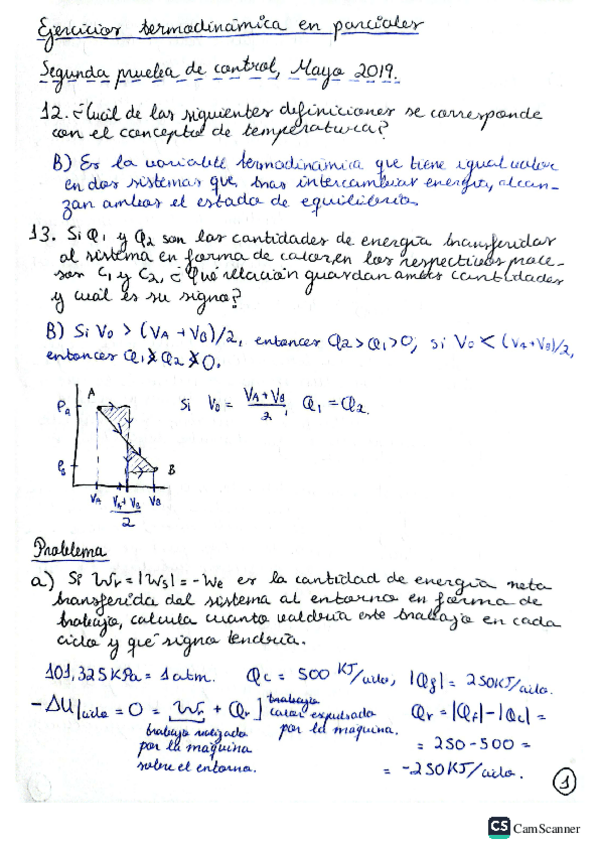 Ejercicios termodinámica en parciales
Segunda prueba de control, Mayo 2019.
12. ¿Cuál de las siguientes definiciones se corresponde
con el concepto de temperatura?
B) Es la variable termodinámica que tiene igual valor
en dos sistemas que, tras intercambiar energía, alcan-
zan ambos el estado de equilibrio.
13. Si Q1 y Q2 son las cantidades de energía transferidas
al sistema en forma de calor, en los respectivos proce-
sos C1 y C2, ¿Qué relación guardan ambas cantidades
y cuál es su signo?
B) Si V0 > (VA + VB)/2, entonces Q2 > Q1 > 0; si V0 < (VA+VB)/2,
entonces Q1 > Q2 > 0.
A
PA
si V0 = VA + VB / 2, Q1 = Q2.
B
VA VA + VB / 2 VB
Problema
a) Si Wr = |Ws| = -We es la cantidad de energía neta
transferida del sistema al entorno en forma de
trabajo, calcula cuanto valdría este trabajo en cada
ciclo y qué signo tendría.
101,325 KPa = 1 atm. Qc = 500 KJ/ciclo, = 250 KJ/ciclo.
-ΔU|ciclo = 0 = + Qr] trabajo
calor expulsado
por la maquina.
trabajo realizado
por la maquina
sobre el entorno.
Qr = |Qf| - |Qc| =
= 250 - 500 =
= -250 KJ/ciclo.
1
CS CamScanner